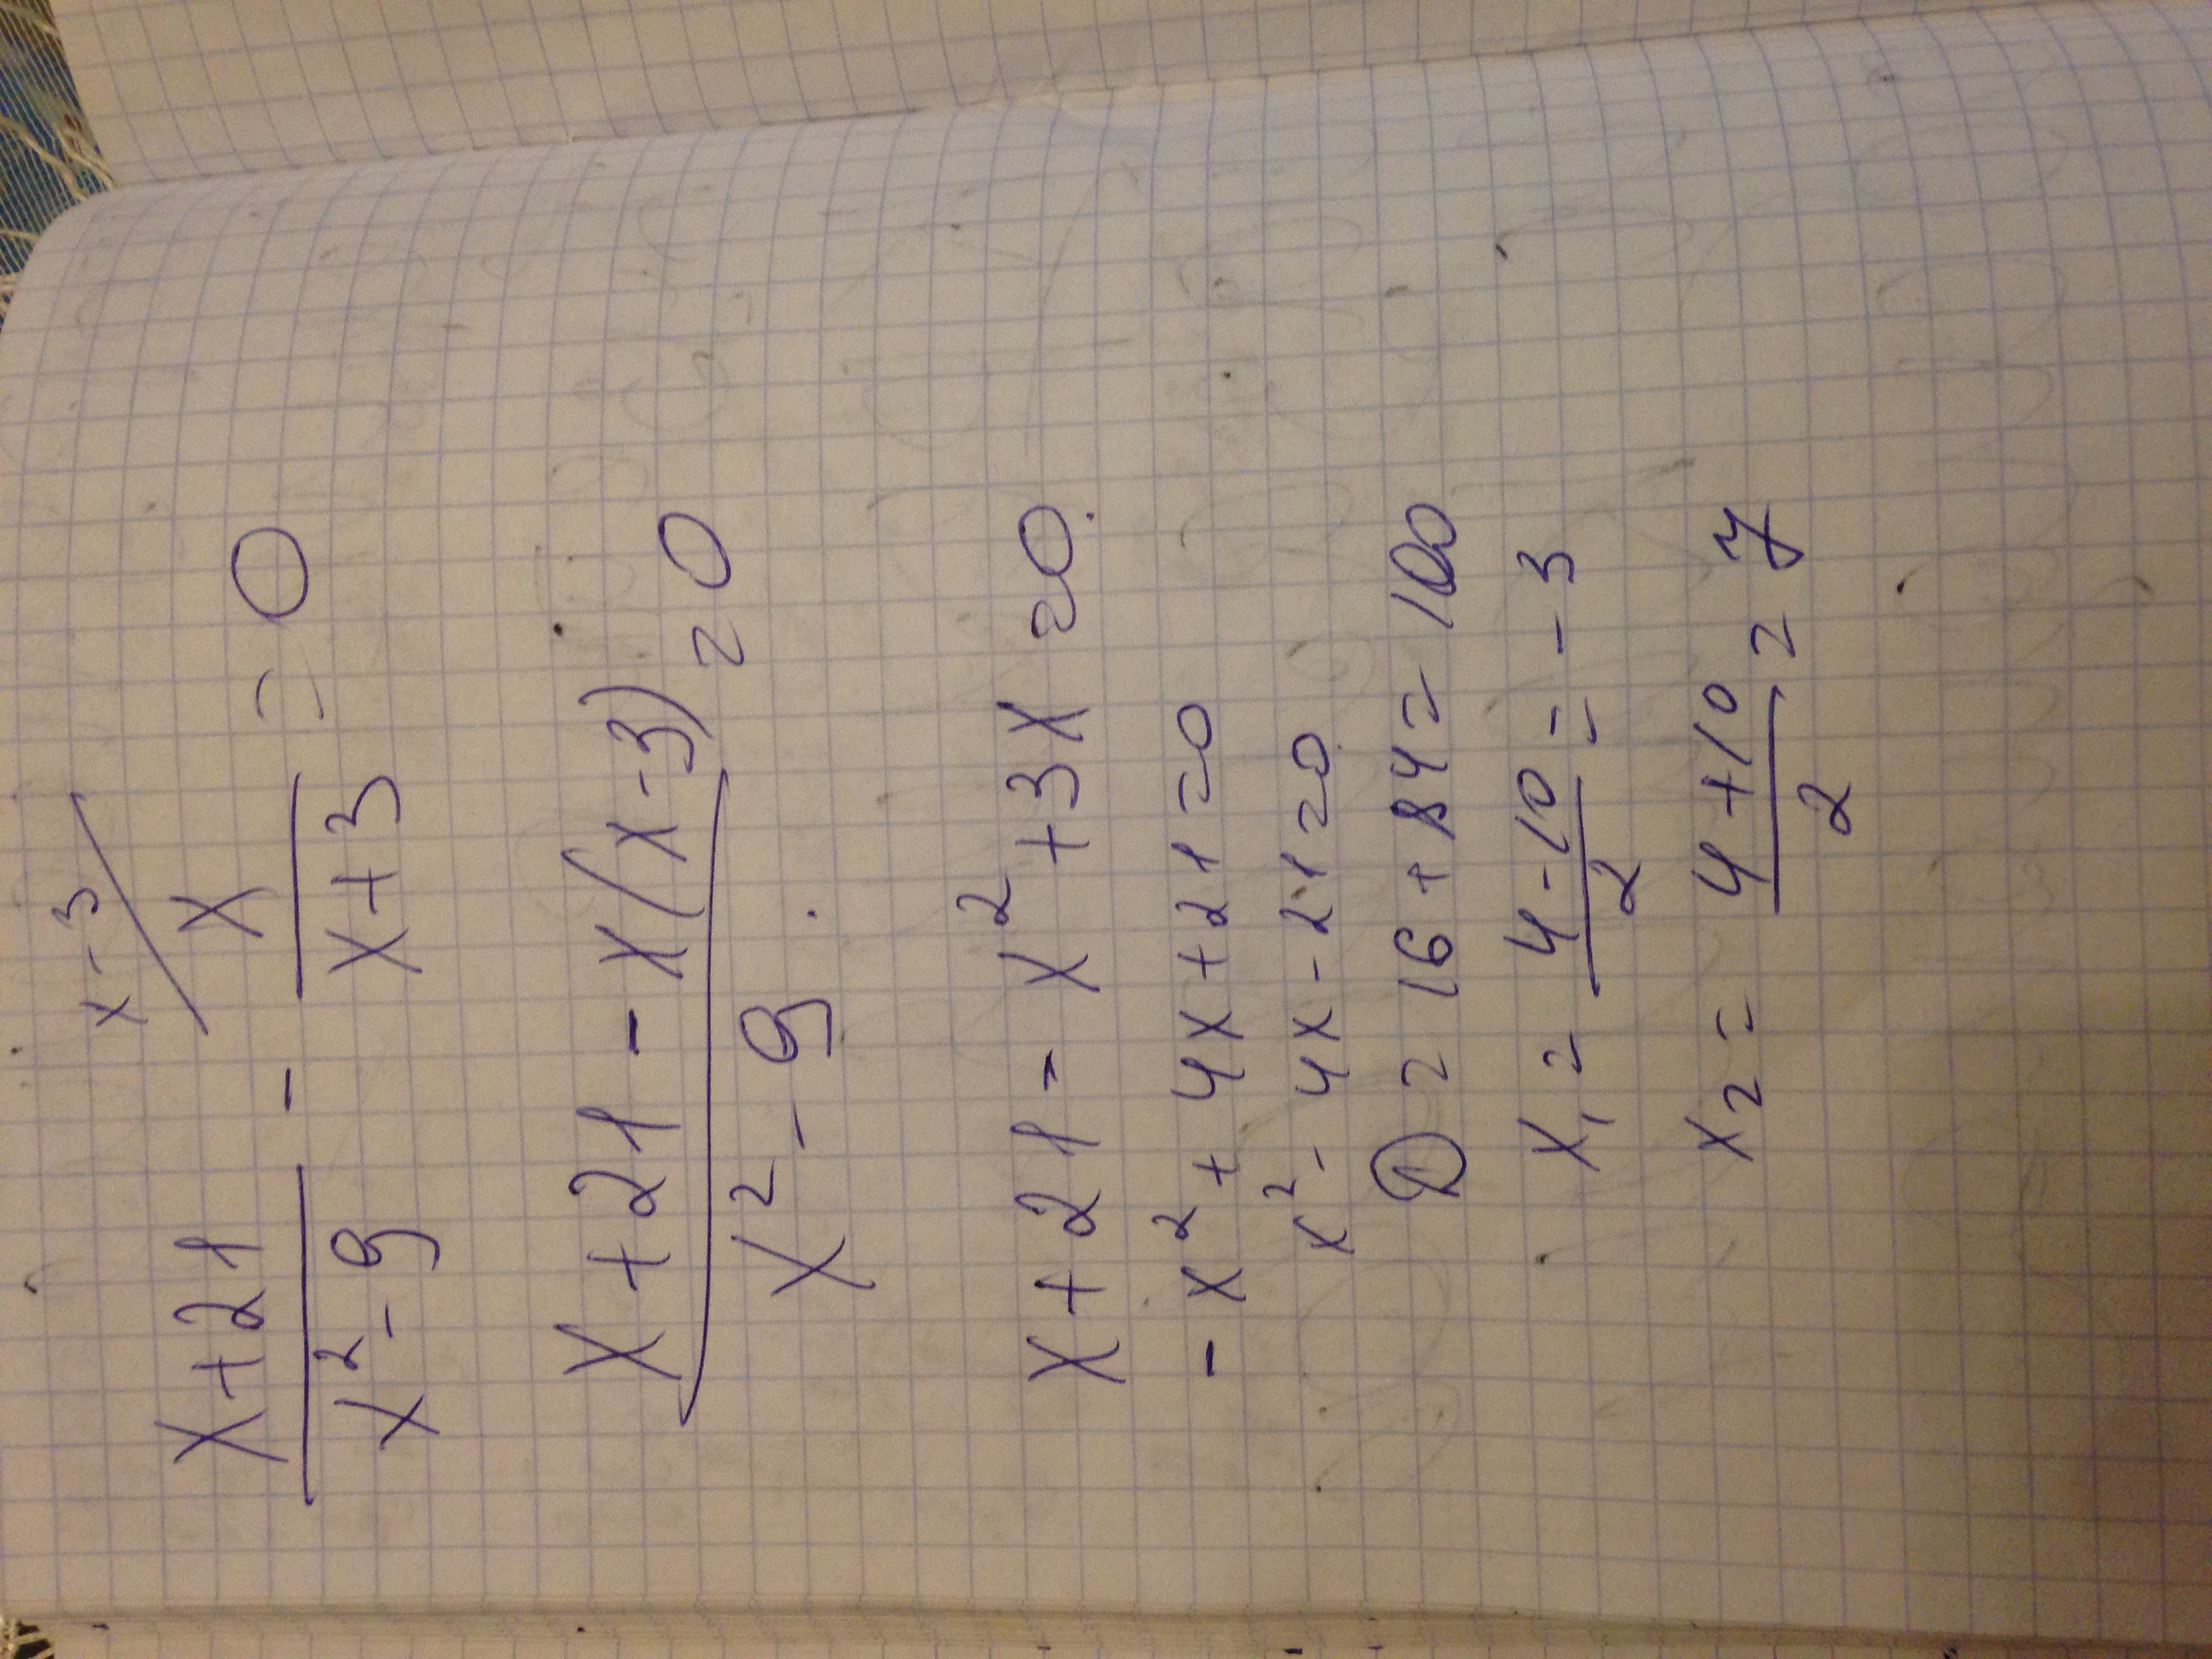 x-3
x+21/x²-9 - x/x+3 = 0
x+21-x(x-3)/x²-9 = 0
x+21-x²+3x=0.
-x²+4x+21=0
x²-4x-21=0
D=16+84=100
x₁=4-10/2=-3
x₂=4+10/2=7